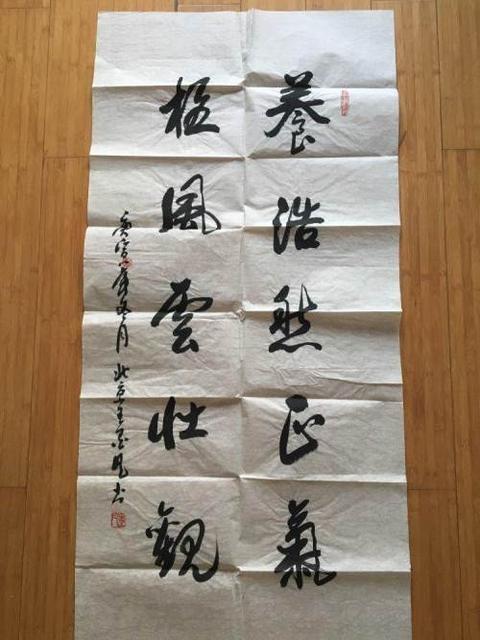 養浩然正氣
極風雲壯觀
庚寅年月 北京王书